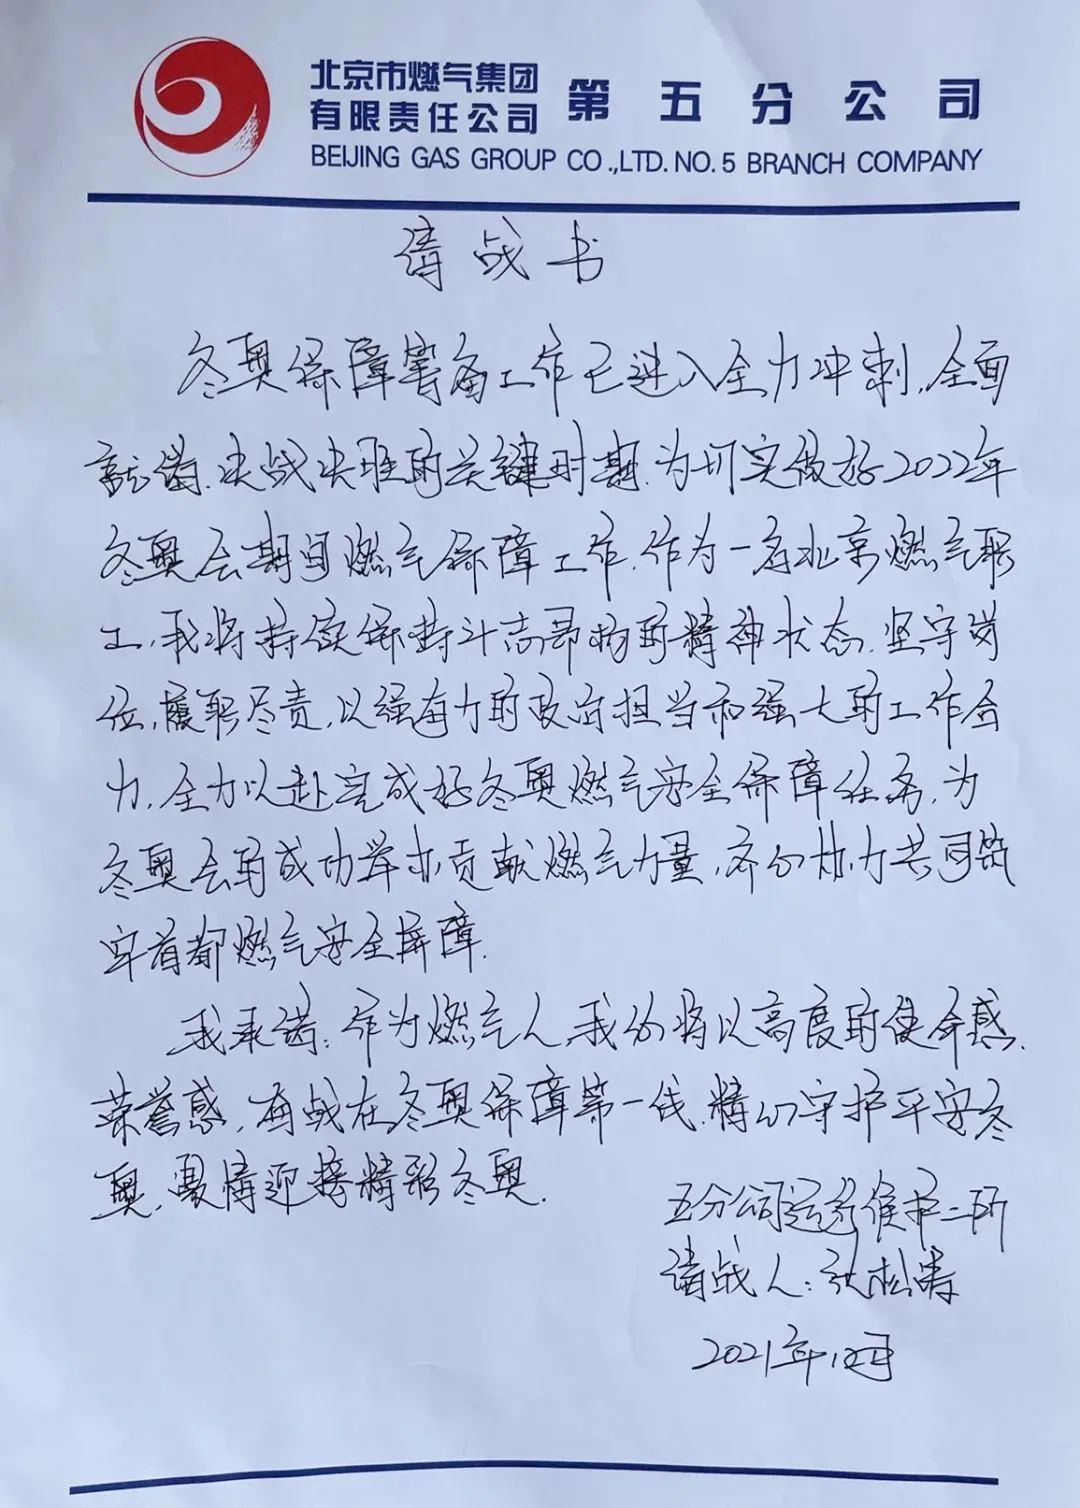 北京市燃气集团
有限责任公司 第五分公司
BEIJING GAS GROUP CO.,LTD.NO.5 BRANCH COMPANY
请战书
冬奥保障筹备工作已进入全力冲刺,全面
就绪.决战决胜的关键时期.为切实做好2022年
冬奥会期间燃气保障工作.作为一名北京燃气职
工,我将持续保持斗志昂扬的精神状态.坚守岗
位,履职尽责,以强有力的政治担当和强大的工作合
力,全力以赴完成好冬奥燃气安全保障任务,为
冬奥会的成功举办贡献燃气力量,齐心协力共同筑
牢首都燃气安全屏障.
我承诺:作为燃气人,我们将以高度的使命感.
荣誉感,奋战在冬奥保障第一线.精心守护平安冬
奥,豪情迎接精彩冬奥.
五分公司运行维护二所
请战人:张松涛
2021年12月